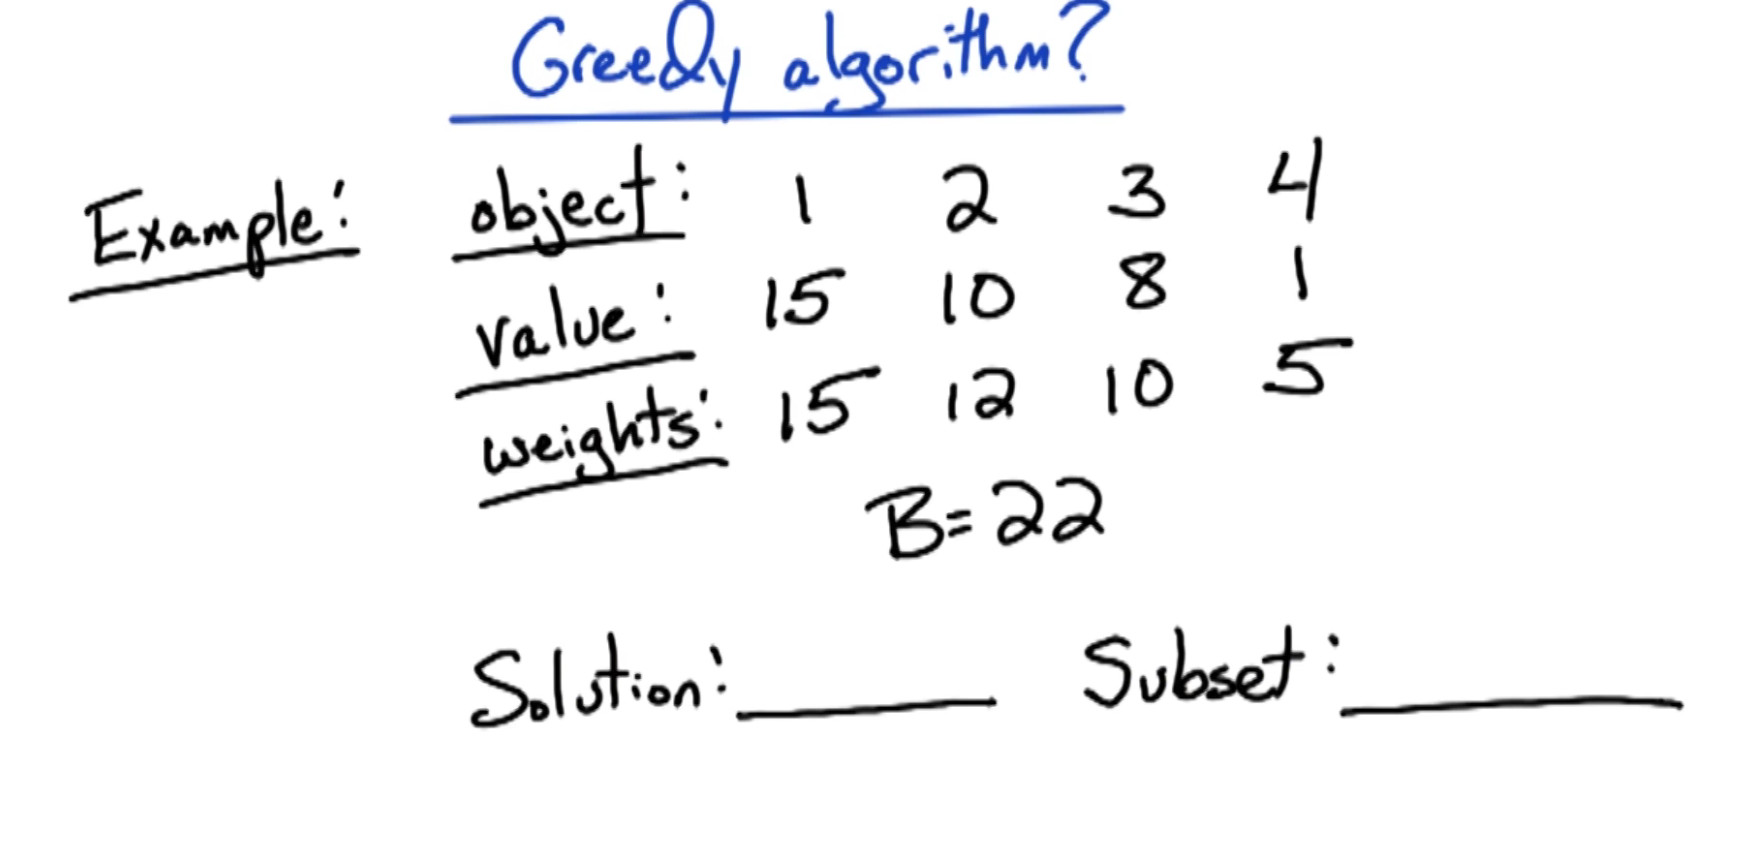 Greedy algorithm?
Example: object: 1 2 3 4
value: 15 10 8 1
weights: 15 12 10 5
B=22
Solution: ______ Subset: ______